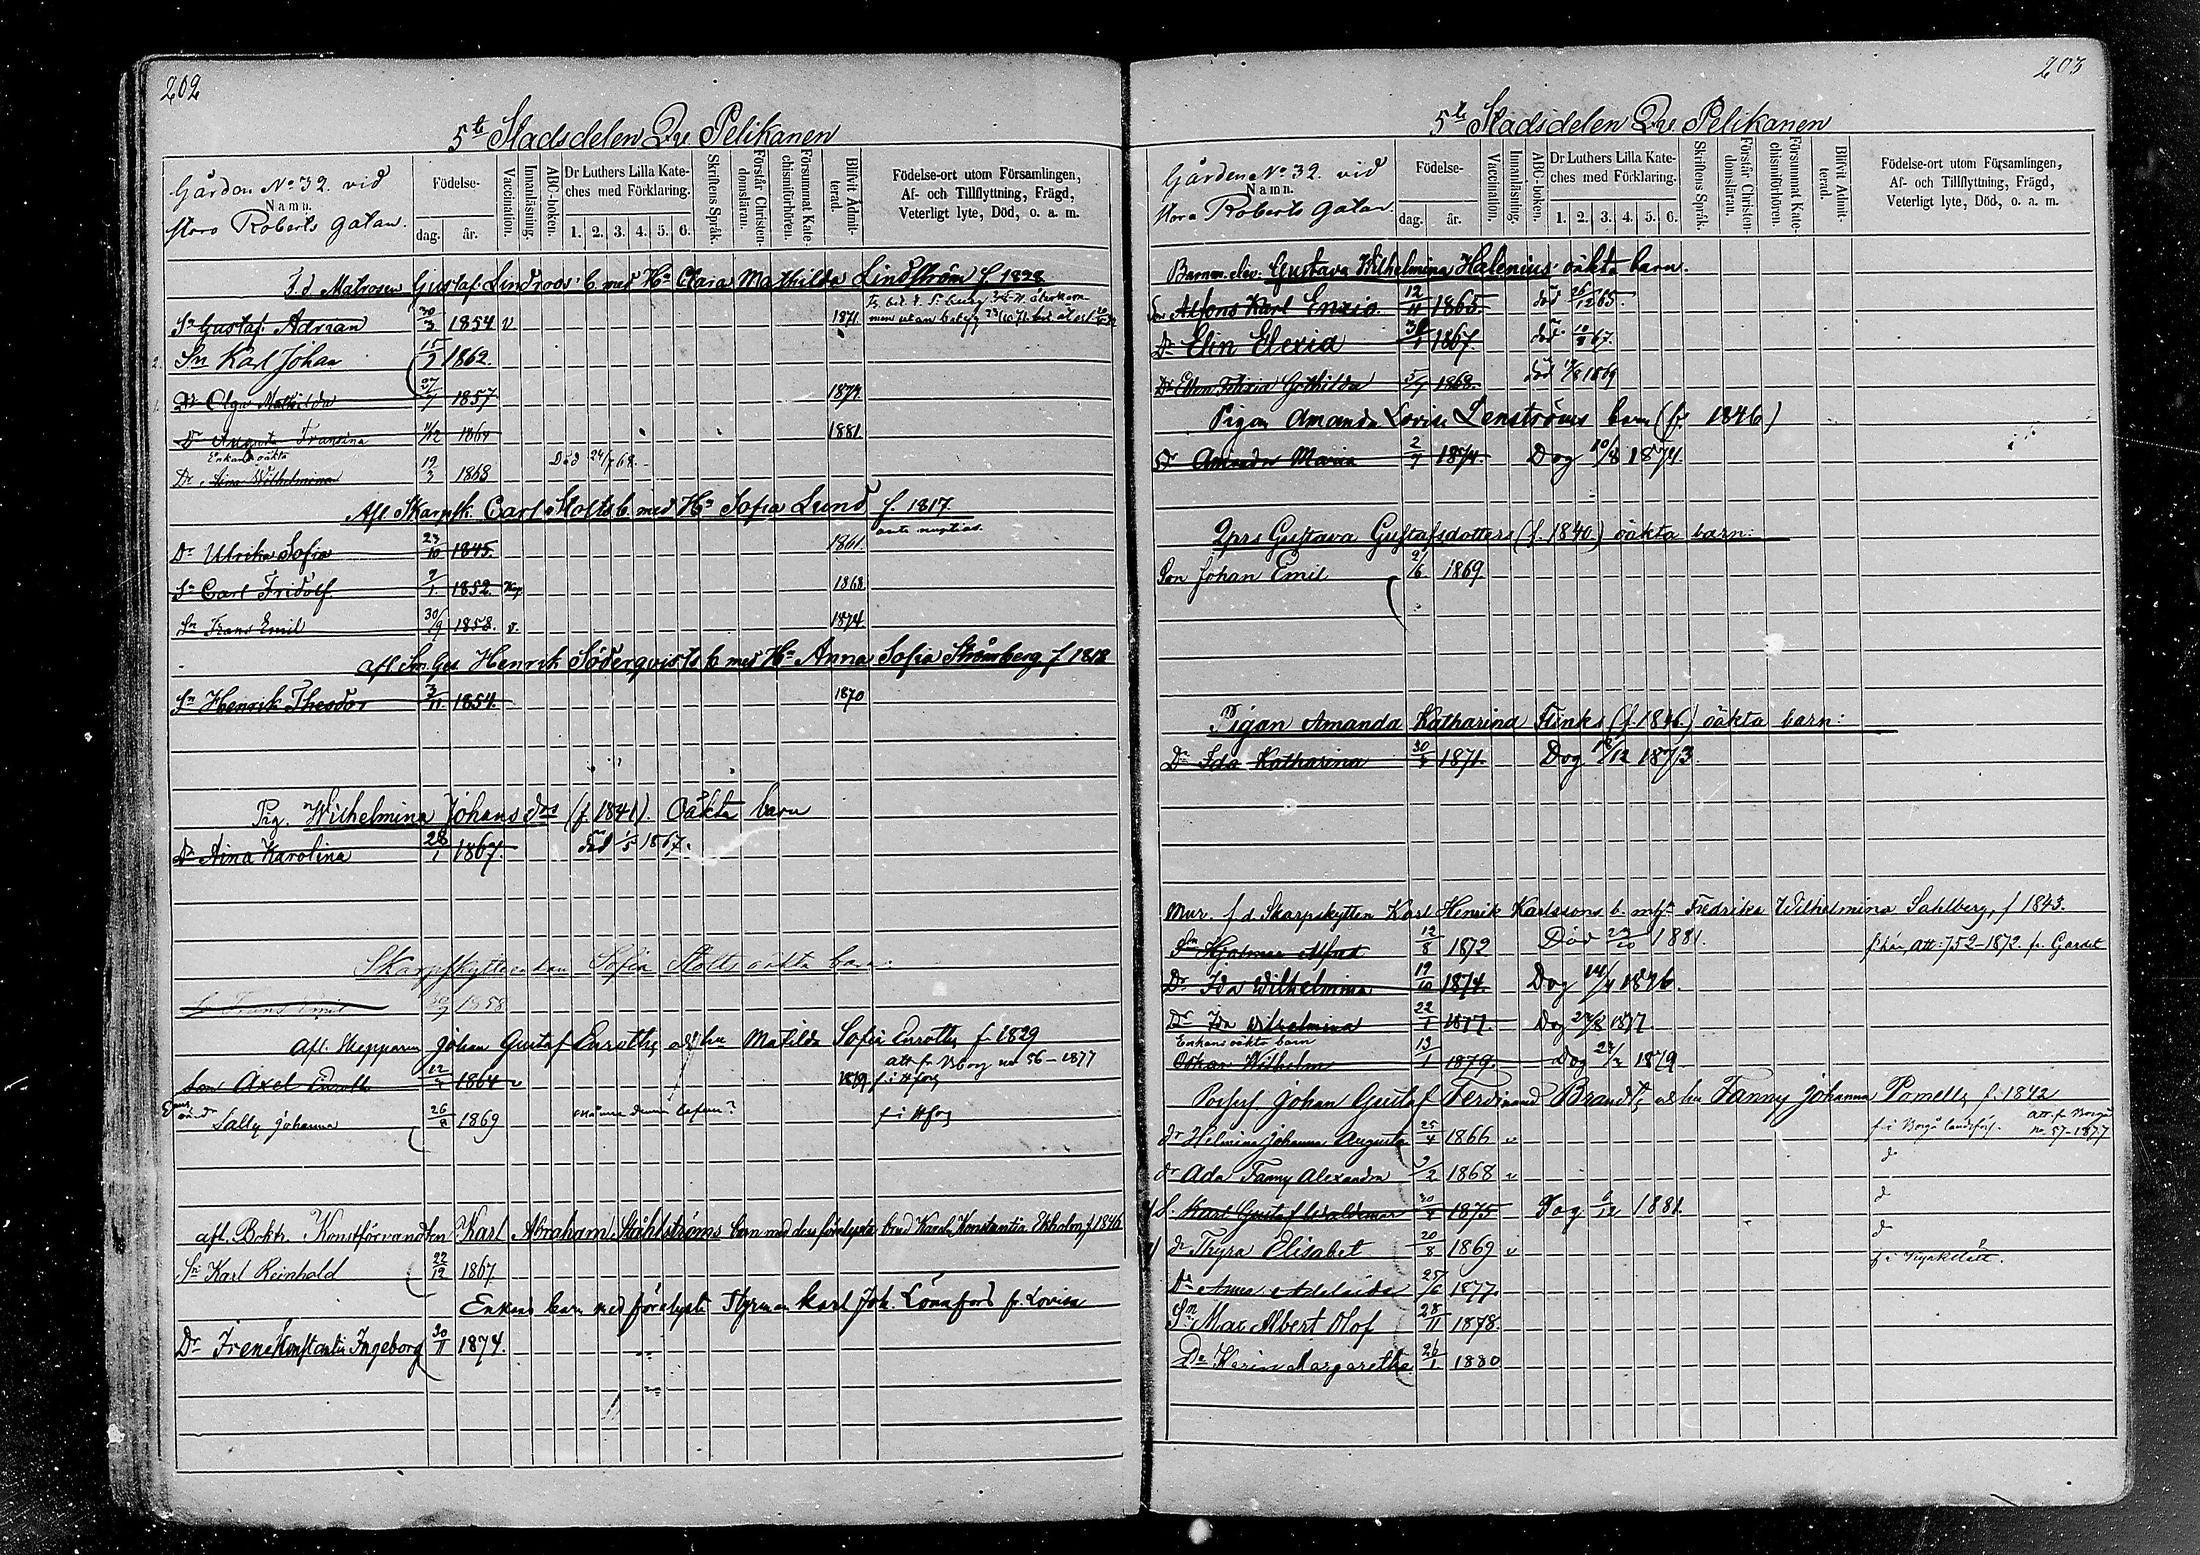 202
5te Stadsdelen Qv. Pelikanen
Gården No 32. vid
Namn.
stora Roberts gatan.
Födelse-
dag. år.
Vaccination.
Innanläsning.
ABC-boken.
Dr Luthers Lilla Kate-
ches med Förklaring.
1. 2. 3. 4. 5. 6.
Skriftens Språk.
Förstår Christen-
domsläran.
Försummat Kate-
chismiförhören.
Blifvit Admit-
terad.
Födelse-ort utom Församlingen,
Af- och Tillflyttning, Frägd,
Veterligt lyte, Död, o. a. m.
F.d Matrosen Gustaf Lindroos b. med Ha Clara Mathilda Lindström f. 1828
Sn Gustaf Adrian 30/3 1854 v 1871
2. Sn Karl Johan 15/9 1862.
1. Dr Olga Mathilda 27/7 1857 1874
Dr Augusta Fransina 1864 1881
Enkans oäkta
Dr Aina Wilhelmina 19/3 1868 Död 24/7 68.
Afl. Skarpsk. Carl Stolts b. med Ha Sofia Lund f. 1817.
Dr Ulrika Sofia 23/10 1845 1861
Sn Carl Fridolf 9/1 1852 1868
Sn Frans Emil 30/9 1858. v. 1874
afl. Henrik Söderqvists b. med Ha Anna Sofia Strömberg f 1818
Sn Henrik Theodor 3/11 1854. 1870
Pig. Wilhelmina Johans drs (f. 1841). Oäkta barn
Dr Aina Karolina 28/1 1867. död 1/5 1867.
Skarpskytteenkan Sofia Stolts oäkta barn:
Frans Emil 30/9 1858
Afl. Skepparen Johan Gustaf Enroths o hu Matilda Sofia Enroths f. 1829
att. fr. Borg no 56-1877
Son Axel Enroth 12/7 1864 v 1879 f. i Hfors
Sally Johanna 26/8 1869 f i Hfors
afl. Boktr. Konstförvandten Karl Abraham Ståhlströms barn med dess förelupta brud Karol. Konstantia Ekholm f. 1846
Sn Karl Reinhold 22/12 1867
Enkans barn med förelupta Styrman Karl Joh. Lönnfors fr. Lovisa
Dr Irene Konstantia Ingeborg 30/11 1874.
203
5te Stadsdelen Qv. Pelikanen
Gården No 32. vid
Namn.
stora Roberts gatan
Födelse-
dag. år.
Vaccination.
Innanläsning.
ABC-boken.
Dr Luthers Lilla Kate-
ches med Förklaring.
1. 2. 3. 4. 5. 6.
Skriftens Språk.
Förstår Christen-
domsläran.
Försummat Kate-
chismiförhören.
Blifvit Admit-
terad.
Födelse-ort utom Församlingen,
Af- och Tillflyttning, Frägd,
Veterligt lyte, Död, o. a. m.
Barnm. elev. Gustava Wilhelmina Halenius' oäkta barn.
Son Alfons Karl Enzio. 12/11 1865. död 26/12 65.
Dr Elin Elexia 1867. död 10/8 67.
Dr Ellen Felixia Gothilda 5/7 1868. död 19/8 1869
Pigan Amanda Lovisa Lenströms barn (f. 1846)
Dr Amanda Maria 2/7 1874. Dog 10/8 1874
Qprs Gustava Gustafsdotters (f. 1840) oäkta barn:
Son Johan Emil 9/6 1869
Pigan Amanda Katharina Flinks (f. 1846) oäkta barn:
Dr Ida Katharina 1871. Dog 1873.
Mur. f d. Skarpskytten Karl Henrik Karlssons b. m hu Fredrika Wilhelmina Sahlberg, f 1843.
Sn Hjalmar Alfred 12/8 1872 Död 23/10 1881. att: 752-1872. fr. Gardet
Dr Ida Wilhelmina 19/10 1874. Dog 14/4 1876.
Dr Ida Wilhelmina 22/1 1877. Dog 1877.
Enkans oäkta barn
Oskar Wilhelm 13/1 1879. Dog 1879
Johan Gustaf Ferdinand Brandt, o hu Fanny Johanna Pomell, f. 1842
att. f. Borgå
no 57-1877
dr Helmina Johanna Augusta 25/4 1866 v f. i Borgå landsförs.
dr Ada Fanny Alexandra 9/2 1868 v d
S. Karl Gustaf Waldemar 1875 Dog 1881. d
dr Thyra Elisabet 20/8 1869 v d
f. i Kyrkslätt.
Dr Anna Adelaide 25/6 1877.
Sn Max Albert Olof 28/11 1878.
Dr Karin Margaretha 26/1 1880